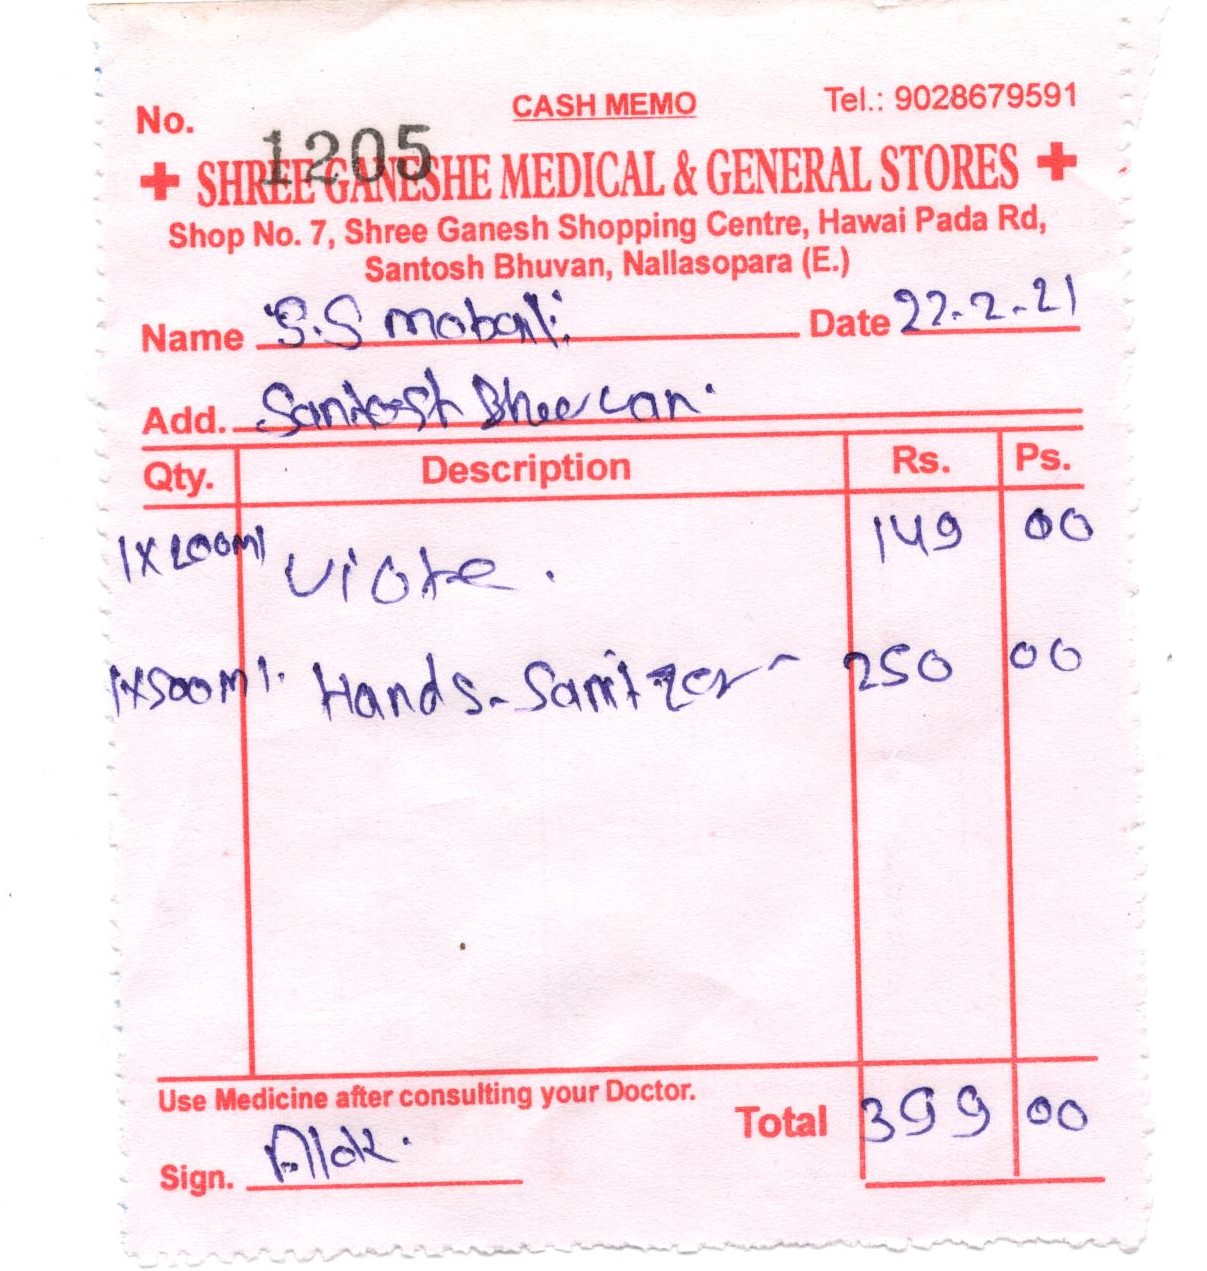 No. 1205 CASH MEMO Tel.: 9028679591
SHREE GANESHE MEDICAL & GENERAL STORES
Shop No. 7, Shree Ganesh Shopping Centre, Hawai Pada Rd,
Santosh Bhuvan, Nallasopara (E.)
Name S.S Date 22-2-21
Add.
Qty. Description Rs. Ps.
1X200Ml 149 00
1X500Ml. Hands-Sanitzer - 250 00
Use Medicine after consulting your Doctor.
Total 399 00
Sign. Alok.